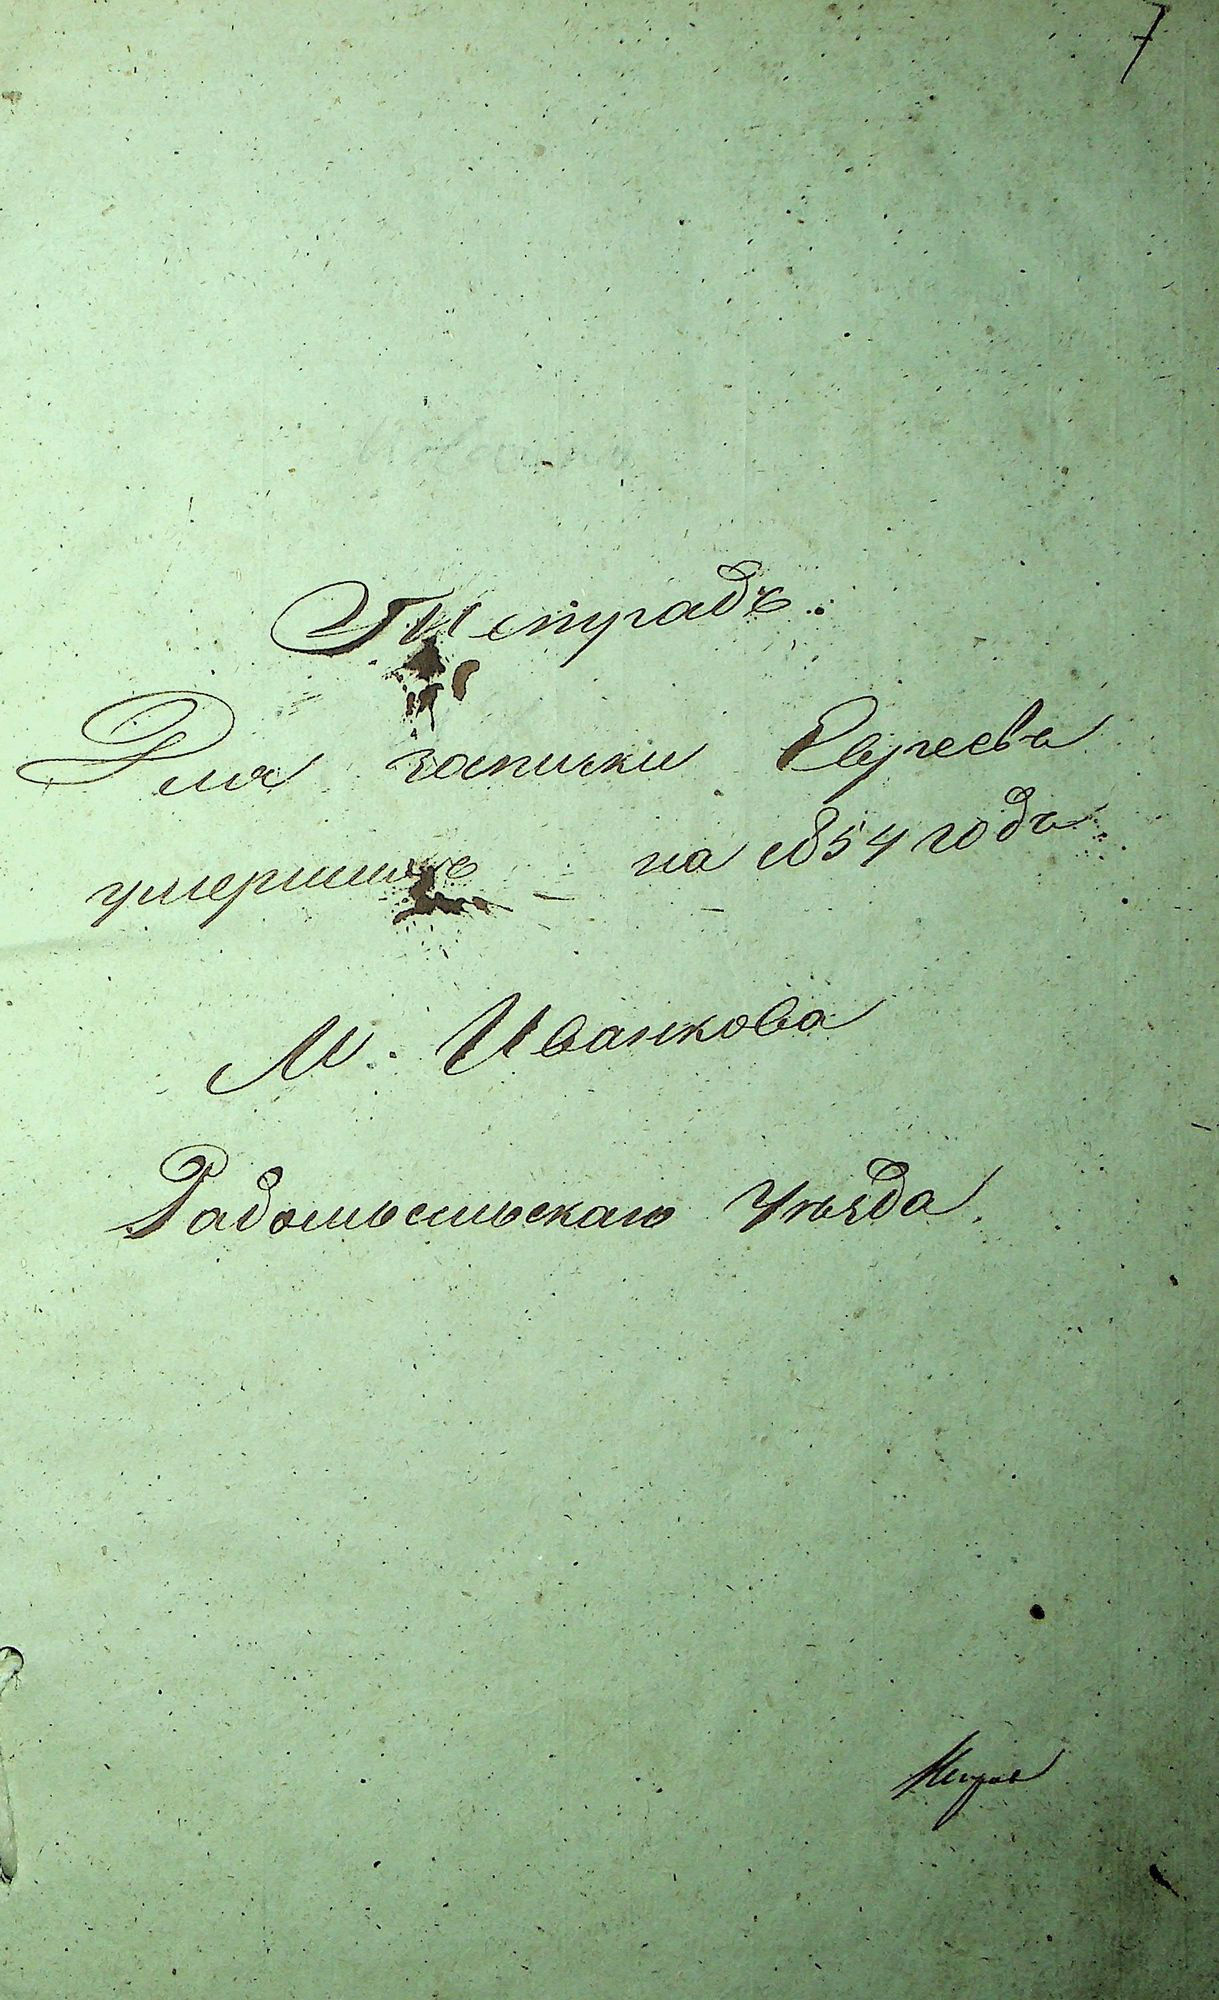 7
Тетрадь
Для записки Евреевъ
умершихъ на 1854 годъ
М. Иванкова
Радомысльскаго Уѣзда